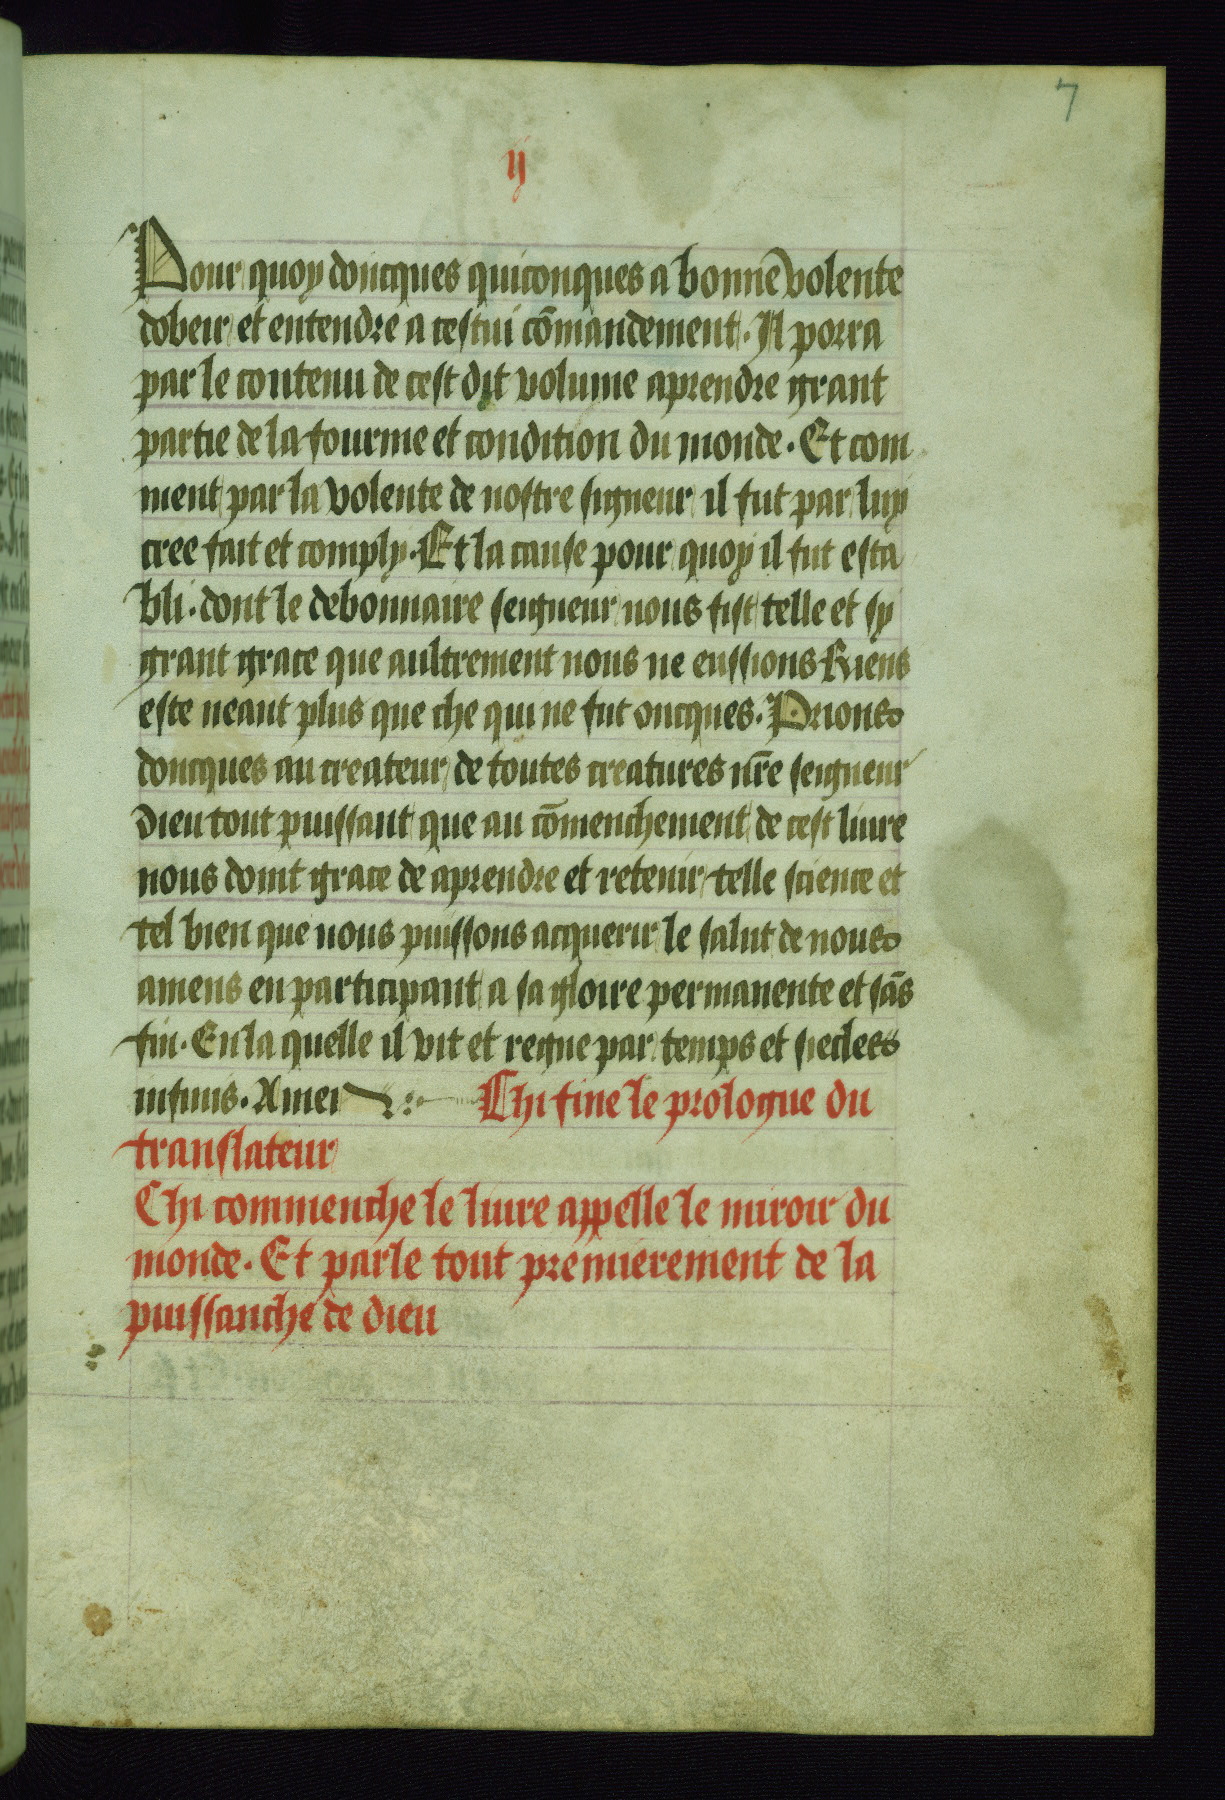 7
ij
Pour quoy doncques quiconques a bonne volente
dobeir et entendre a cestui cōmandement. Il porra
par le contenu de cest dit volume aprendre grant
partie de la fourme et condition du monde. Et com
ment par la volente de nostre signeur il fut par luy
cree fait et comply. Et la cause pour quoy il fut esta
bli. dont le debonnaire seigneur nous fist telle et sy
grant grace que aultrement nous ne eussions Riens
este neant plus que che qui ne fut oncques. Prions
doncques au createur de toutes creatures nr̄e seigneur
dieu tout puissant que au cōmenchement de cest liure
nous doint grace de aprendre et retenir telle science et
tel bien que nous puissons acquerir le salut de nous
amens en participant a sa gloire permanente et sās
fin. En la quelle il vit et regne par temps et siecles
infinis. Amen Chi fine le prologue du
translateur
Chi commenche le liure appelle le miroir du
monde. Et parle tout premierement de la
puissanche de dieu